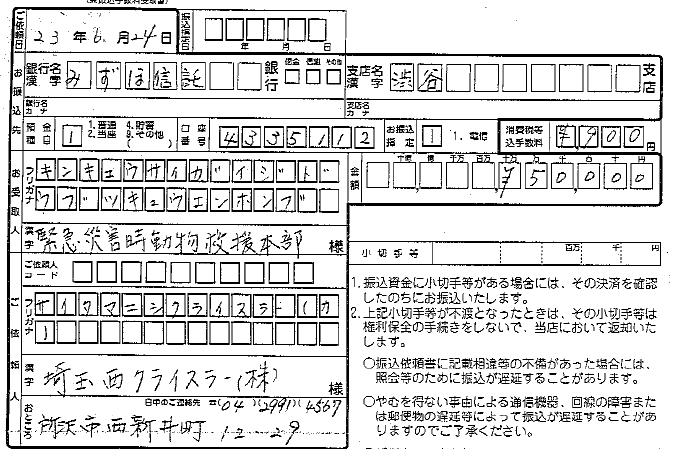 ご依頼日 23年6月24日 振込指定日 年 月 日
お振込先
銀行名 漢字 みずほ信託 銀行 信金 信組 その他 支店名 漢字 渋谷 支店
銀行名 カナ 支店名 カナ
預金種目 1 1.普通 2.当座 4.貯蓄 9.その他( ) 口座番号 4335112 お振込指定 1 1.電信 消費税等込手数料 ¥900円
金額 千億 億 千万 百万 十万 万 千 百 十 円
¥50000
お受取人
フリガナ キンキュウサイガイジド
ウブツキュウエンホンブ
漢字 緊急災害時動物救援本部 様
小切手等 百万 千 円
ご依頼人コード
ご依頼人
フリガナ サイタマニシクライスラー(カ
)
漢字 埼玉西クライスラー(株) 様
日中のご連絡先 ☎(04)(2991)4567
おところ 所沢市西新井町 12-29
1.振込資金に小切手等がある場合には、その決済を確認
したのちにお振込いたします。
2.上記小切手等が不渡となったときは、その小切手等は
権利保全の手続きをしないで、当店において返却いた
します。
○振込依頼書に記載相違等の不備があった場合には、
照会等のために振込が遅延することがあります。
○やむを得ない事由による通信機器、回線の障害また
は郵便物の遅延等によって振込が遅延することがあ
りますのでご了承ください。